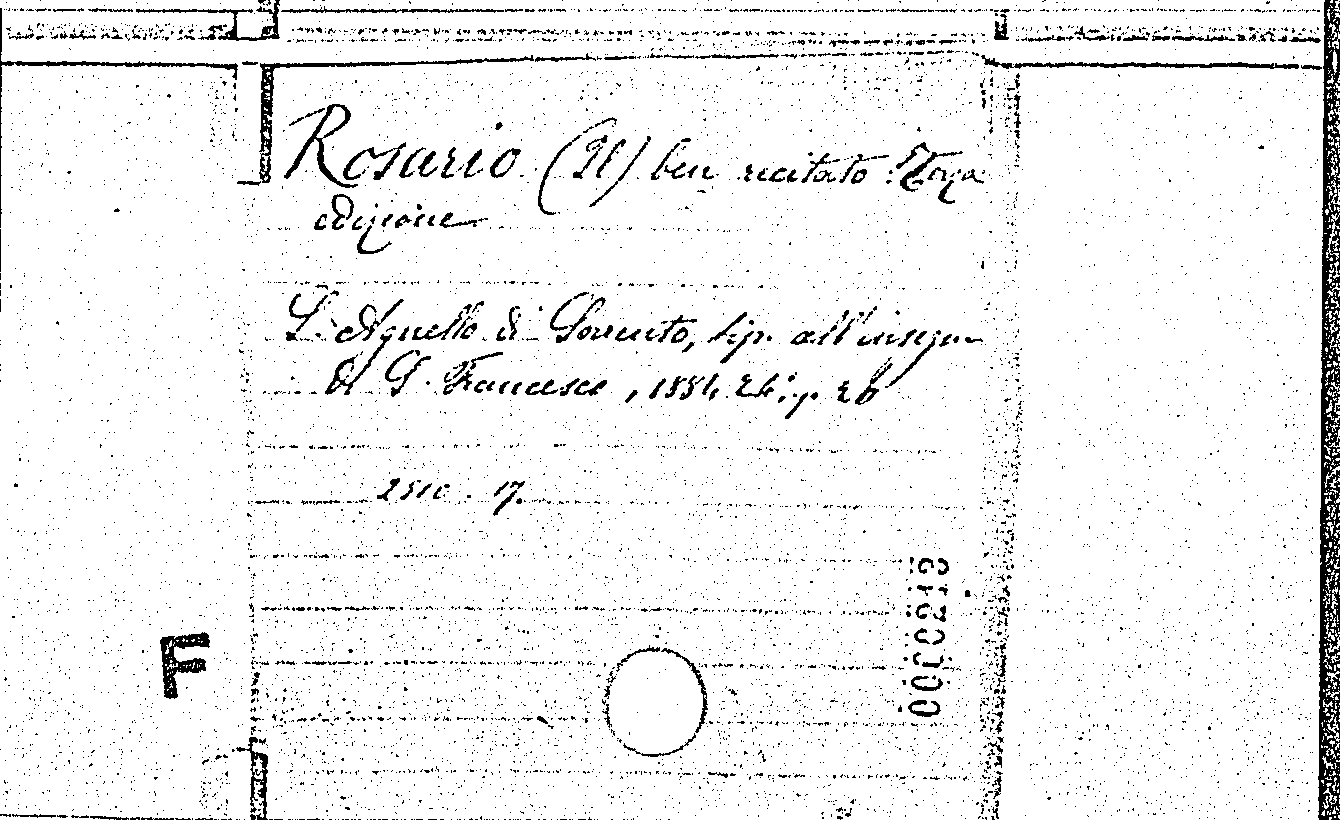 Rosario (Il) ben recitato. Terza
edizione
S. Agnello di Sorrento, tip. all'insegna
di S. Francesco, 1884 24° p. 26
2510. 17.
0000219
F